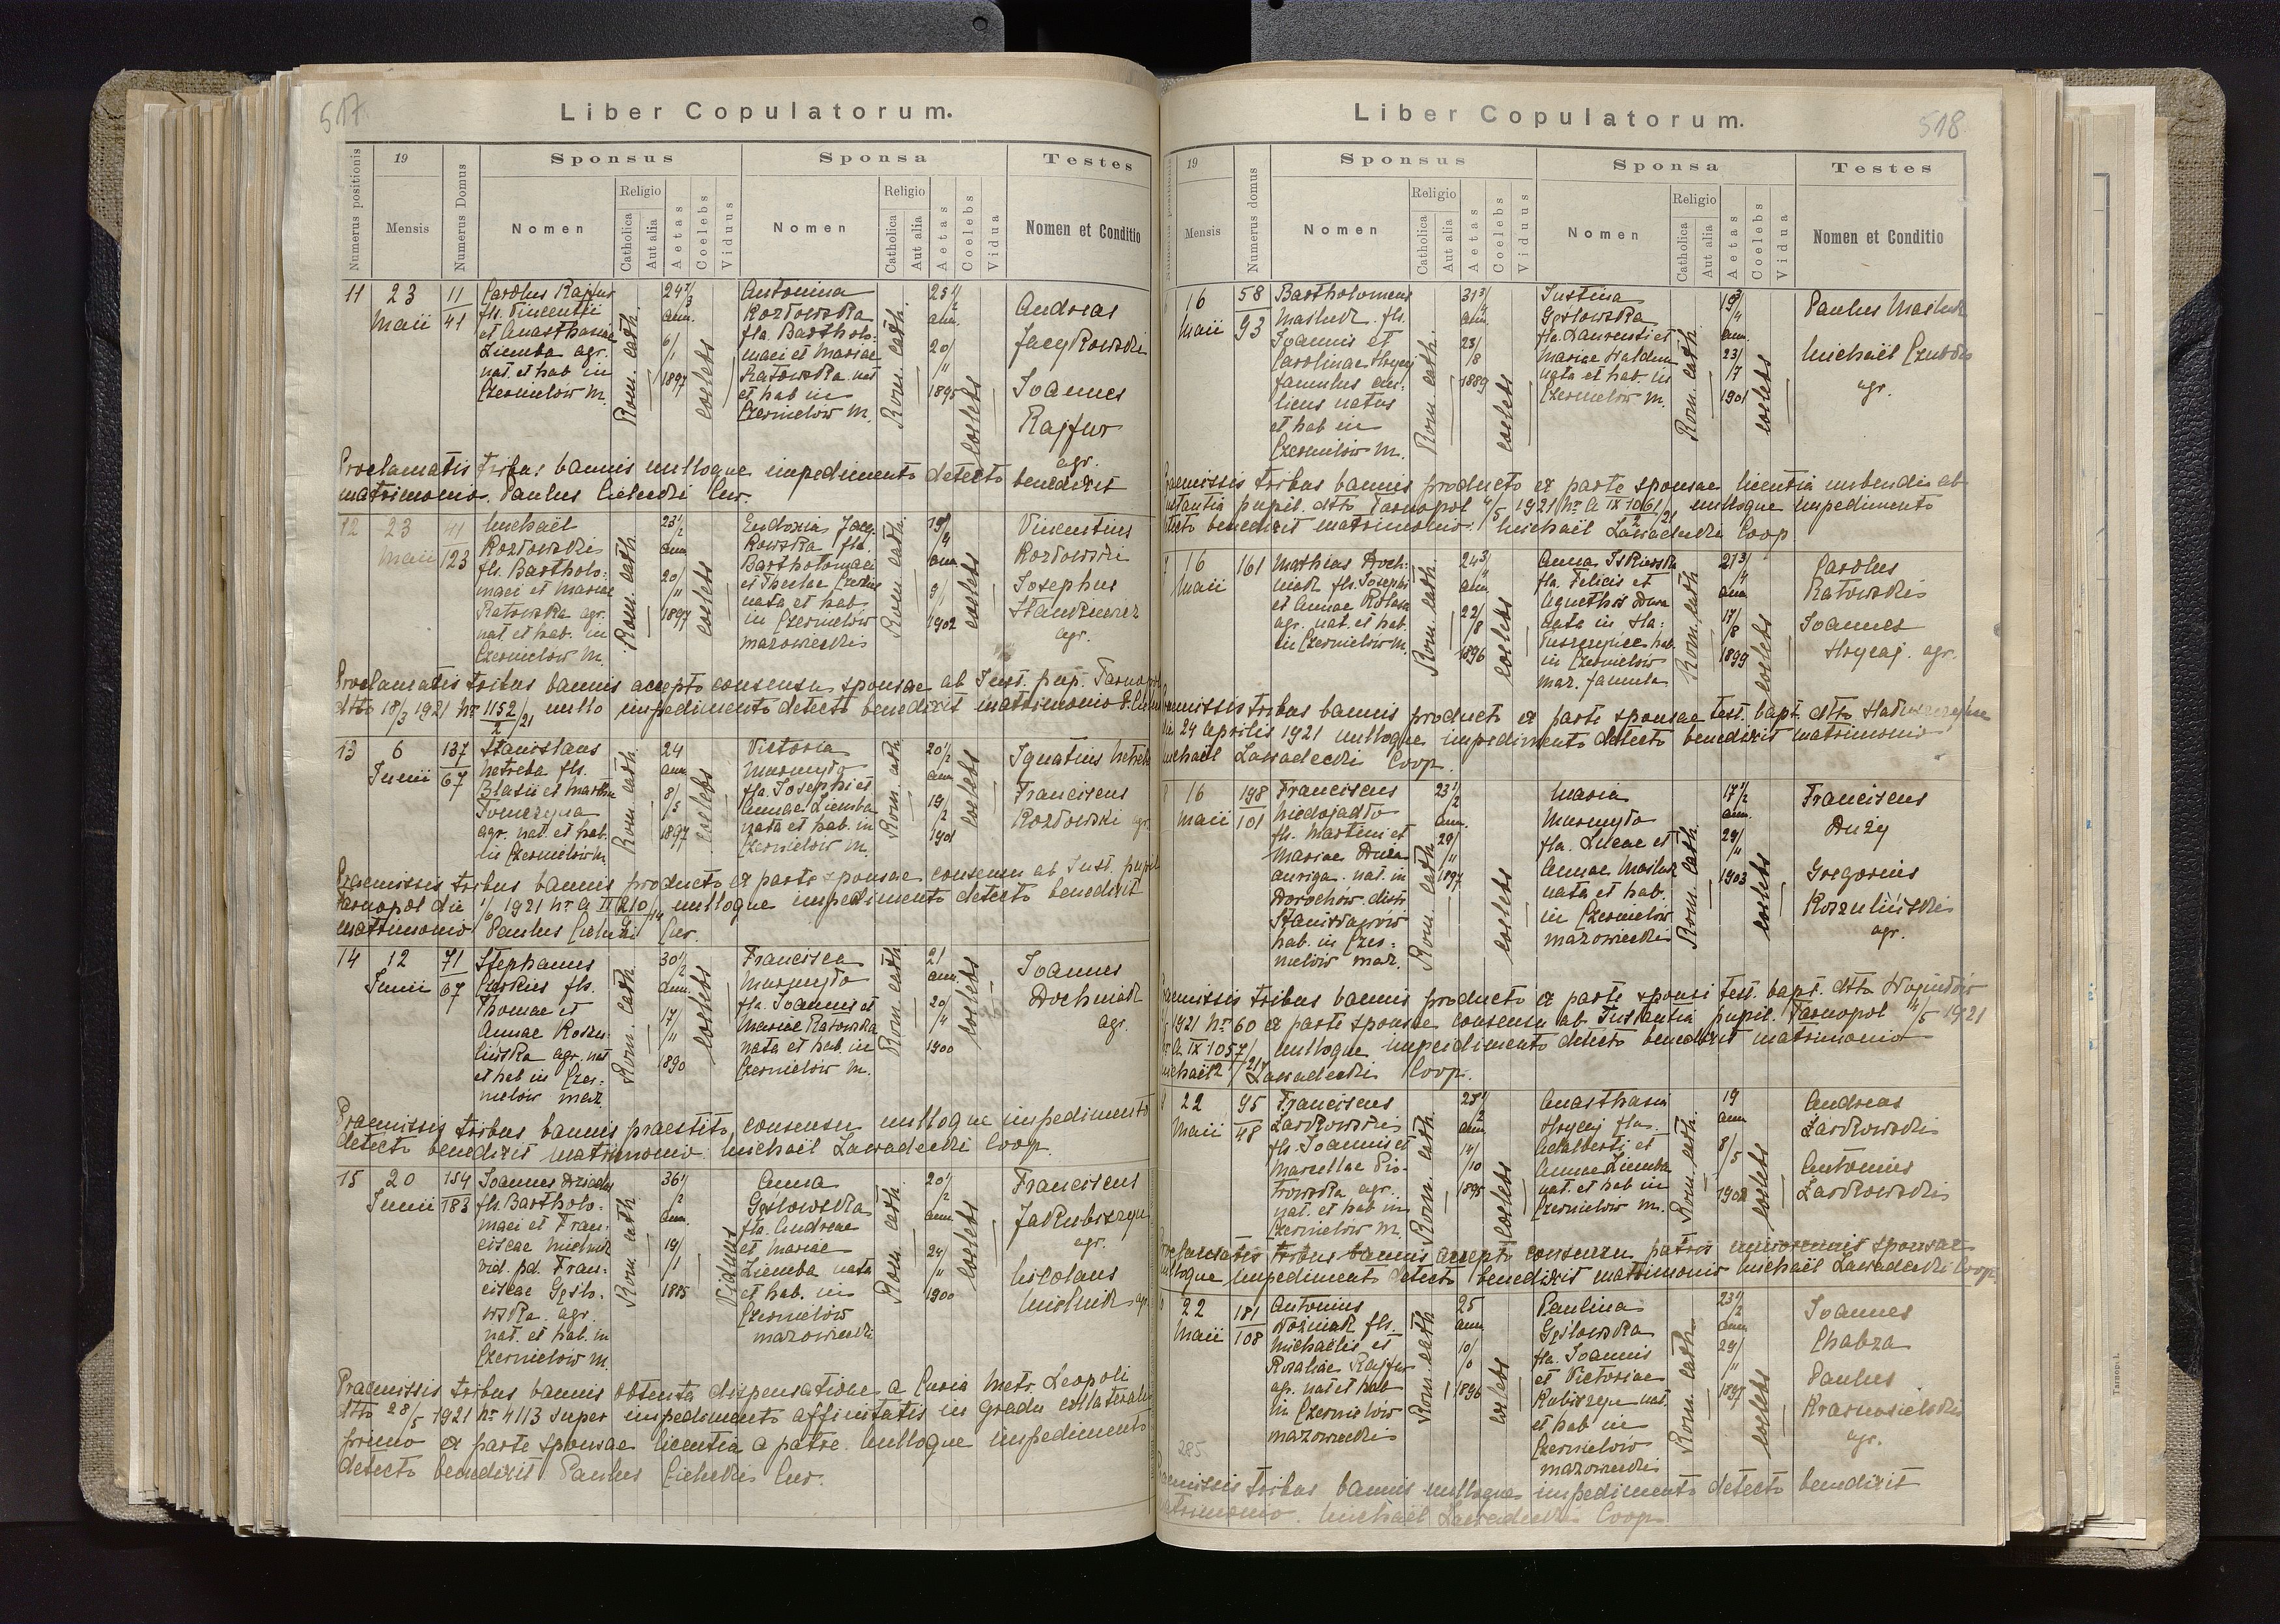 517
Liber Copulatorum.
Numerus positionis
19
Mensis
Numerus Domus
Sponsus
Nomen
Religio
Catholica
Aut alia
Aetas
Coelebs
Vidus
Sponsa
Nomen
Religio
Catholica
Aut alia
Aetas
Coelebs
Vidua
Testes
Nomen et Conditio
11
23
Maii
11
41
Carolus Rajfur
fls. Vincentii
et Anasthasiae
Ziemba agr.
nat. et hab in
Czernielów M.
Rom. cath.
24 1/3
ann.
6/1
1897
coelebs
Antonina
Kozłowska
fla. Bartholo-
maei et Mariae
Ratowska nat
et hab in
Czernielów M.
Rom. cath.
25 1/2
ann.
20/11
1895
coelebs
Andreas
Jacykowski
Joannes
Rajfur
agr.
Proclamatis tribus bannis nulloque impedimento detecto benedixit
matrimonio. Paulus Cielecki Cur.
12
23
Maii
41
123
Michaël
Kozłowski
fls. Bartholo:
maei et Mariae
Ratowska agr.
nat. et hab. in
Czernielów M.
Rom. cath.
23 1/2
ann
20/11
1897
coelebs
Eudoxia Jacy-
kowska fla.
Bartholomaei
et Theclae
nata et hab
in Czernielów
mazowiecki
Rom cath.
19
ann.
9/
1902
coelebs
Vincentius
Kozłowski
Josephus
Stankiewicz
agr.
Proclamatis tribus bannis accepto consensu sponsae ab Inst. pup. Tarnopol
dtto 18/3 1921 No 1152/2/21 nullo impedimento detecto benedixit matrimonio
13
6
Junii
137
67
Stanislaus
Netreba fls.
Blasii et Martha
Tomczyna
agr. nat. et hab.
in Czernielów M.
Rom. cath.
24
ann
8/5
1897
coelebs
Victoria
Murmyło
fla. Josephi et
Annae Ziemba
nata et hab. in
Czernielów M.
Rom. cath
20 1/2
ann
19/2
1901
coelebs
Ignatius Netreba
Franciscus
Kozłowski agr
Praemissis tribus bannis producto ex parte sponsae consensu ab Inst. pupil
Tarnopol die 1/6 1921 No A II 210/14 nulloque impedimento detecto benedixit
matrimonio Paulus Cielecki Cur.
14
12
Junii
71
67
Stephanus
fls.
Thomae et
Annae Koszu-
lińska agr. nat
et hab in Czer:
nielów maz.
Rom. cath
30 1/2
ann.
17/11
1890
coelebs
Francisca
Murmyło
fla. Joannis et
Mariae Ratowska
nata et hab. in
Czernielów M.
Rom. cath
21
ann.
20/
1900
coelebs
Joannes
Dochniak
agr.
Praemissis tribus bannis praestito consensu nulloque impedimento
detecto benedixit matrimonio. Michaël Zawadecki Coop.
15
20
Junii
154
183
Joannes
fls. Bartholo:
maei et Fran:
ciscae Mielnik
vid. pd. Fran:
ciscae Gęsło-
wska. agr.
nat. et hab. in
Czernielów M.
Rom cath
36 1/2
ann.
19/1
1885
Viduus
Anna
Gęsłowska
fla. Andreae
et Mariae
Ziemba nata
et hab. in
Czernielów
mazowiecki
Rom cath
20 1/2
ann
24/11
1900
coelebs
Franciscus
Jakubiszyn
agr.
Nicolaus
Mielnik agr
Praemissis tribus bannis obtenta dispensatione a Curia Metr. Leopoli
dtto 28/5 1921 No 4113 super impedimento affinitatis in gradu collaterali
primo ex parte sponsae licentia a patre. Nulloque impedimento
detecto benedixit Paulus Cielecki Cur.
518
Liber Copulatorum.
Numerus positionis
19
Mensis
Numerus domus
Sponsus
Nomen
Religio
Catholica
Aut alia
Aetas
Coelebs
Vidus
Sponsa
Nomen
Religio
Catholica
Aut alia
Aetas
Coelebs
Vidua
Testes
Nomen et Conditio
16
Maii
58
93
Bartholomeus
Masluk fls.
Joannis et
Carolinae Hrycaj
famulus
natus
et hab in
Czernielów M.
Rom. cath.
31 3/4
ann.
23/8
1889
coelebs
Justina
Gęsłowska
fla. Laurentii et
Mariae
nata et hab. in
Czernielów M.
Rom. cath.
19 3/4
ann.
23/7
1901
coelebs
Paulus Masluk
Michaël
agr.
Praemissis tribus bannis producto ex parte sponsae licentia nubendi ab
Instantia pupil. dtto Tarnopol 4/5 1921 No A IX 1061/2/21 nulloque impedimento
detecto benedixit matrimonio. Michaël Zawadecki Coop
7
16
Maii
161
Mathias Doch:
niak fls. Josephi
et Annae
agr. nat. et hab.
in Czernielów M.
Rom. cath.
24 3/4
ann.
22/8
1896
coelebs
Anna
fla. Felicis et
nata in Ha:
łuszczyńce hab.
in Czernielów
maz. famula
Rom. cath
21 3/4
ann
17/8
1899
coelebs
Carolus
Ratowski
Joannes
Hrycaj. agr.
Praemissis tribus bannis producto ex parte sponsae test. bapt. dtto Hałuszczyńce
die 24 Aprilis 1921 nulloque impedimento detecto benedixit matrimonio
Michaël Zawadecki Coop.
8
16
Maii
198
101
Franciscus
Niedojadło
fls. Martini et
Mariae
auriga. nat. in
Dorochów distr.
Stanisławów
hab. in Czer:
nielów maz.
Rom. cath
23 1/2
ann.
29/11
1897
coelebs
Maria
Murmyło
fla. Lucae et
Annae Masluk
nata et hab.
in Czernielów
mazowiecki
Rom. cath.
17 1/2
ann.
29/11
1903
coelebs
Franciscus
Duży
Gregorius
Koszuliński
agr.
Praemissis tribus bannis producto ex parte sponsi test. bapt. dtto Wojniłów
1921 No 60 ex parte sponsae consensu ab Instantia pupil. Tarnopol 14/5 1921
No A IX 1057/2/21 nulloque impedimento detecto benedixit matrimonio
Michaël Zawadecki Coop.
9
22
Maii
95
48
Franciscus
Zarkowski
fls. Joannis et
Marcellae Pio-
trowska agr.
nat. et hab in
Czernielów M.
Rom. cath.
25 1/2
ann
14/10
1895
coelebs
Anasthasia
Hrycaj fla.
Adalberti et
Annae Ziemba
nat. et hab in
Czernielów M.
Rom. cath.
19
ann
8/5
1902
coelebs
Andreas
Zarkowski
Antonius
Zarkowski
Proclamatis tribus bannis accepto consensu patris minorennis sponsae
nulloque impedimento detecto benedixit matrimonio Michaël Zawadecki Coop.
22
Maii
181
108
Antonius
Woźniak fls.
Michaelis et
Rosaliae Rajfur
agr. nat et hab
in Czernielów
mazowiecki
Rom. cath
25
ann
10/
1896
coelebs
Paulina
Gęsłowska
fla. Joannis
et Victoriae
Kubiszyn nat.
et hab in
Czernielów
mazowiecki
Rom. cath.
23 1/2
ann
29/11
1897
coelebs
Joannes
Chabza
Paulus
Krasnosielski
agr.
285
Praemissis tribus bannis nulloque impedimento detecto benedixit
matrimonio. Michaël Zawadecki Coop